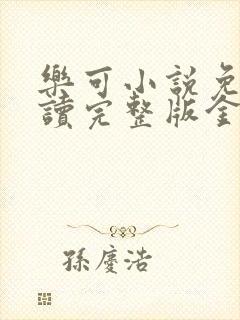 樂可小説免
讀完整版全
孫慶浩